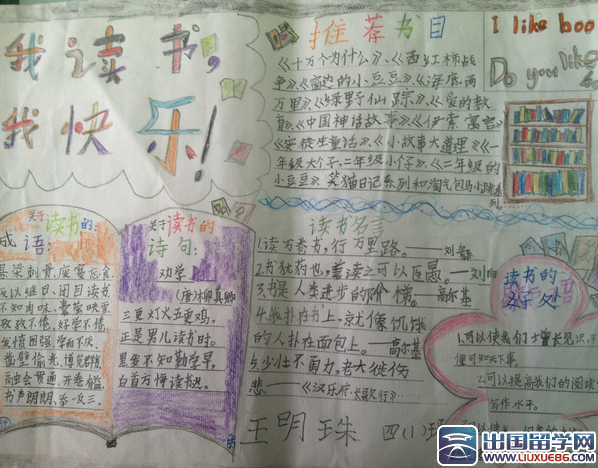 我读书,
我快乐!
推荐书目
《十万个为什么》、《西红柿战
争》《窗边的小豆豆》《海底两
万里》《绿野仙踪》《爱的教
育》《中国神话故事》《伊索寓言》
《安徒生童话》《小故事大道理》《一
年级大个子二年级小个子》《二年级的
小豆豆》、笑猫日记系列和淘气包马小跳系列
I like boo
Do you like
关于读书的:
成语:
悬梁刺股,废寝忘食
夜以继日、闭目读书
不知肉味、囊萤映雪
孜孜不倦、好学不倦
发愤图强、学而不厌
凿壁偷光、博览群书
融会贯通、开卷有益
书声朗朗、举一反三。
关于读书的
诗句:
劝学
(唐)颜真卿
三更灯火五更鸡,
正是男儿读书时。
黑发不知勤学早,
白首方悔读书迟。
读书名言
1.读万卷书,行万里路。——刘彝
2.书犹药也,善读之可以医愚。——刘向
3.书是人类进步的阶梯。高尔基
4.我扑在书上,就像饥饿
的人扑在面包上。——高尔基
5.少壮不努力,老大徒伤
悲——《汉乐府·长歌行》
读书的
好处
1.可以使我们增长见识,不
便可知天下事。
2.可以提高我们的阅读
写作水平。
王明珠 四(1)班
出国留学网
WWW.LIUXUE86.COM